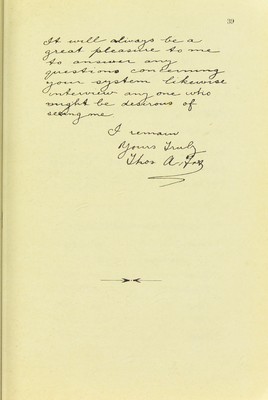 39
It will always be a
great pleasure to me
to answer any
questions concerning
your system likewise
interview any one who
might be desirous of
seeing me
I remain
Yours Truly
Thos A. Fox